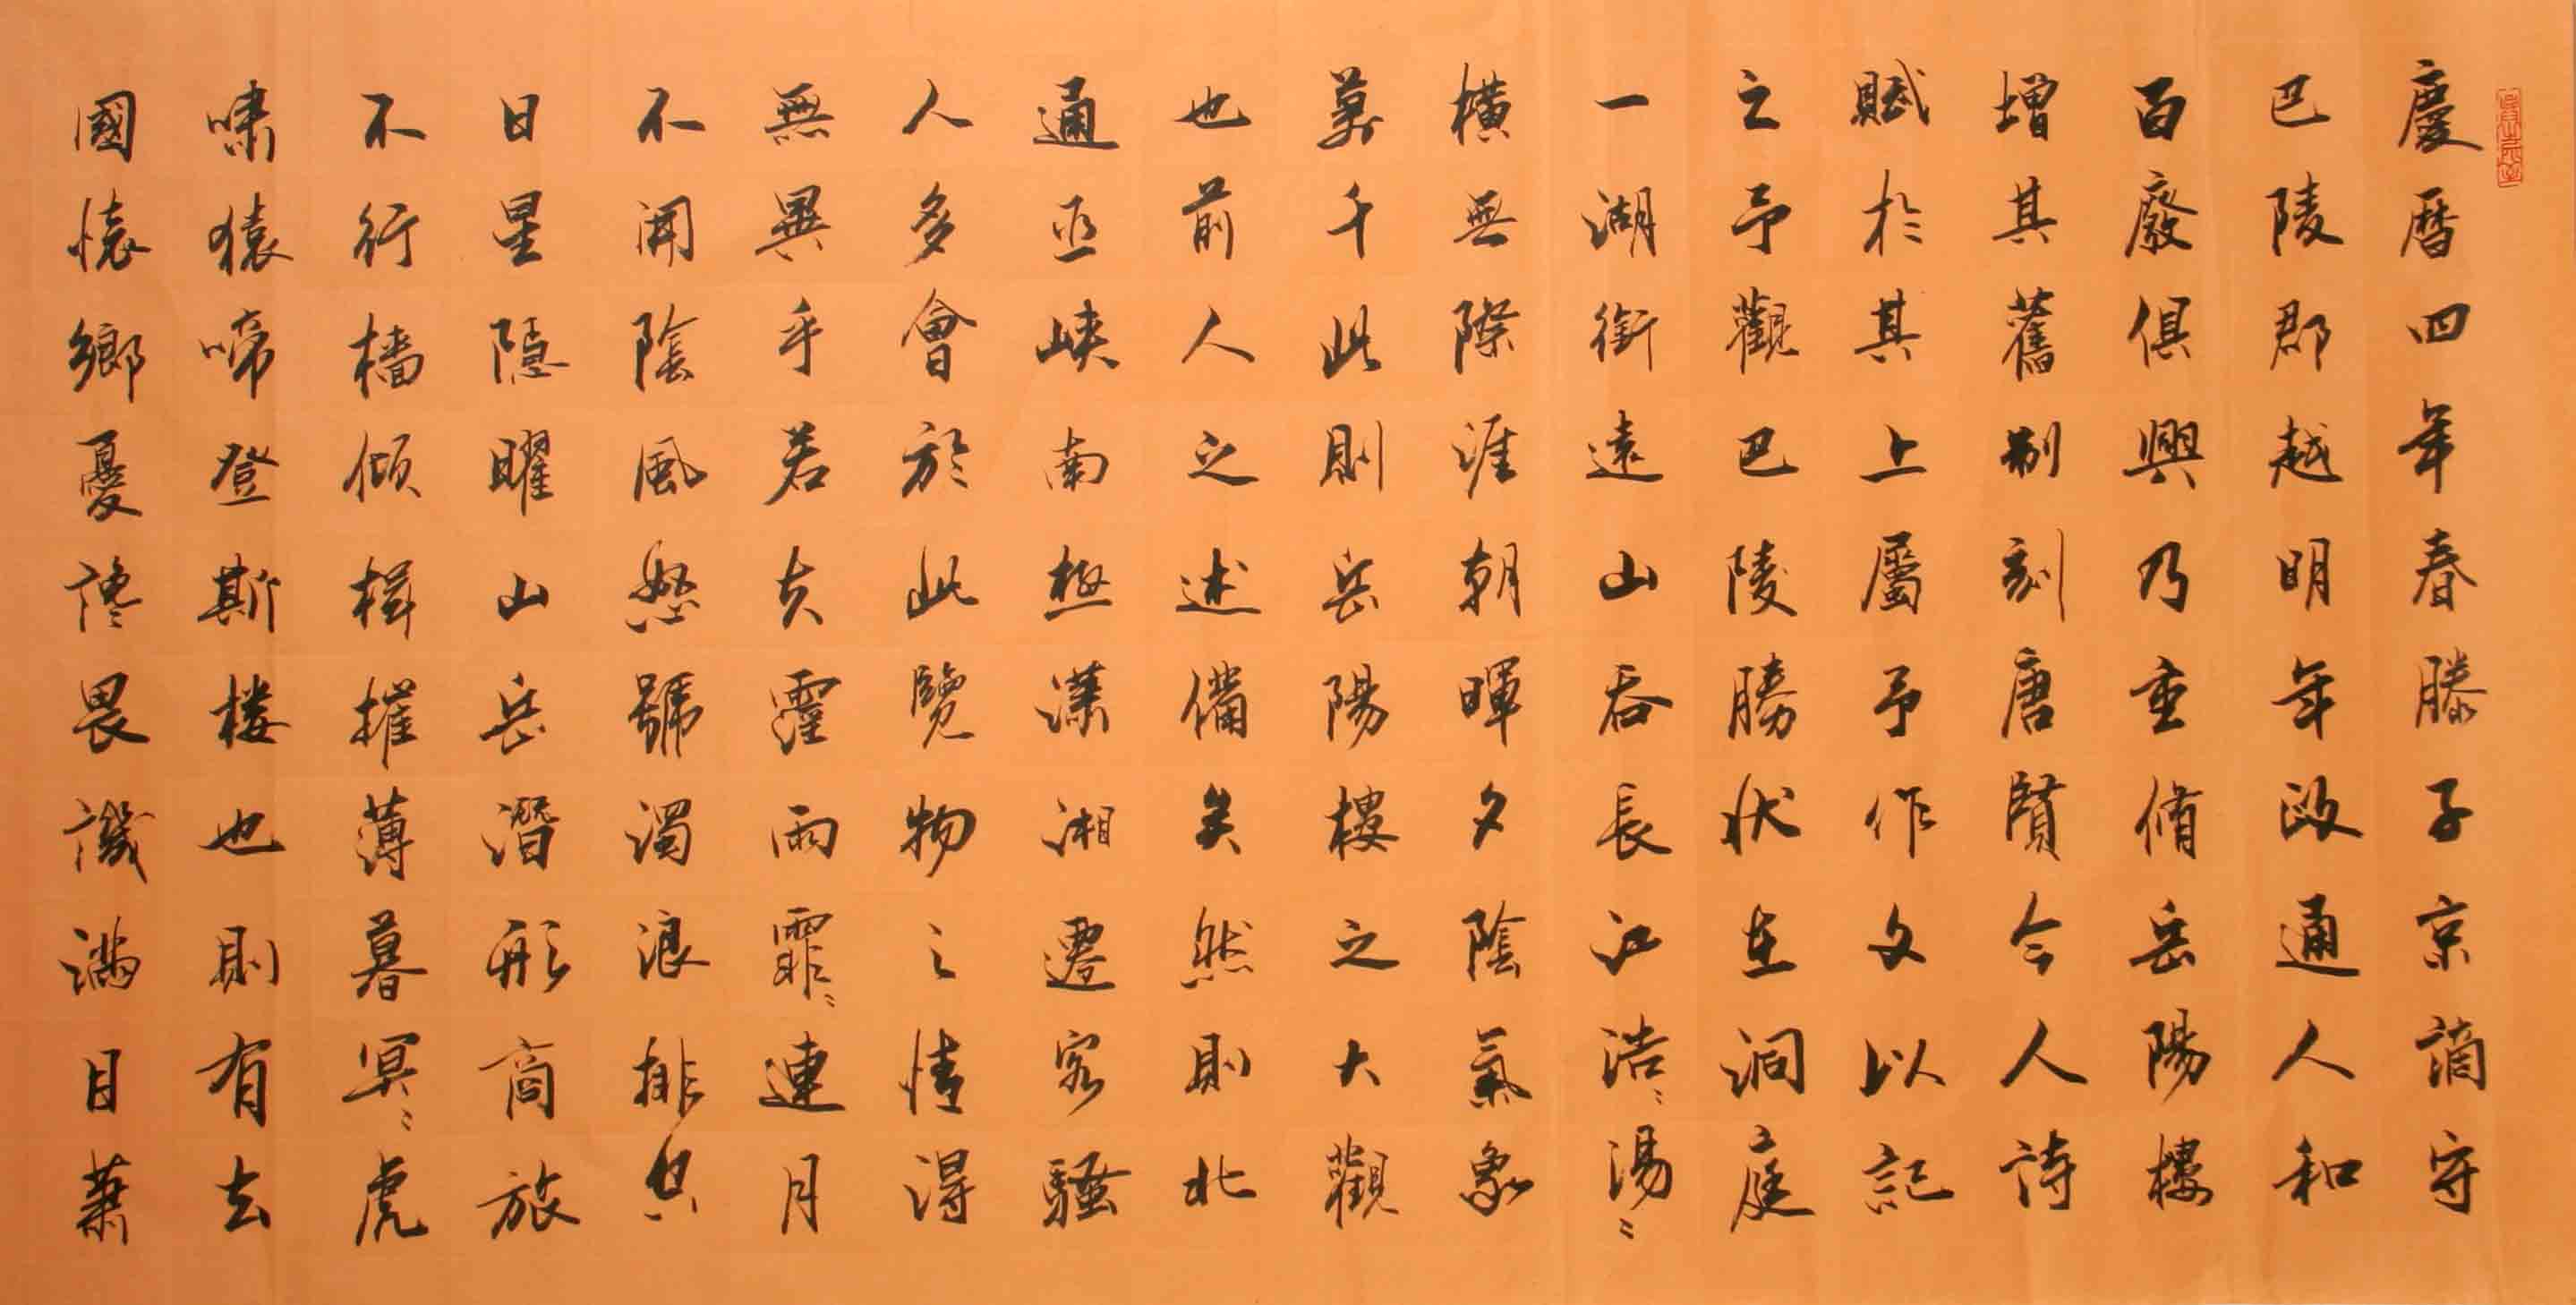 慶曆四年春滕子京謫守
巴陵郡越明年政通人和
百廢俱興乃重脩岳陽樓
增其舊制刻唐賢今人詩
賦於其上屬予作文以記
之予觀巴陵勝狀在洞庭
一湖銜遠山吞長江浩〻湯〻
橫無際涯朝暉夕陰氣象
萬千此則岳陽樓之大觀
也前人之述備矣然則北
通巫峽南極瀟湘遷客騷
人多會於此覽物之情得
無異乎若夫霪雨霏〻連月
不開陰風怒號濁浪排空
日星隱曜山岳潛形商旅
不行檣傾楫摧薄暮冥〻虎
嘯猿啼登斯樓也則有去
國懷鄉憂讒畏譏滿目蕭